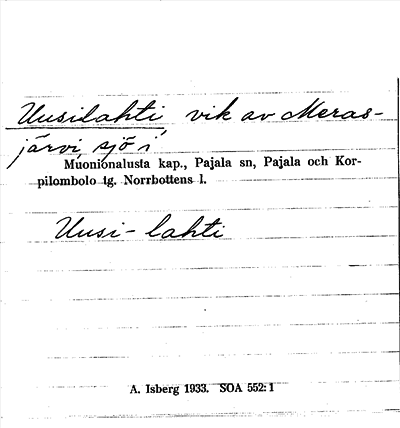 Uusilahti, vik av Meras-
järvi, sjö i
Muonionalusta kap., Pajala sn, Pajala och Kor-
pilombolo tg. Norrbottens l.
Uusi-lahti
A. Isberg 1933. SOA 552:1